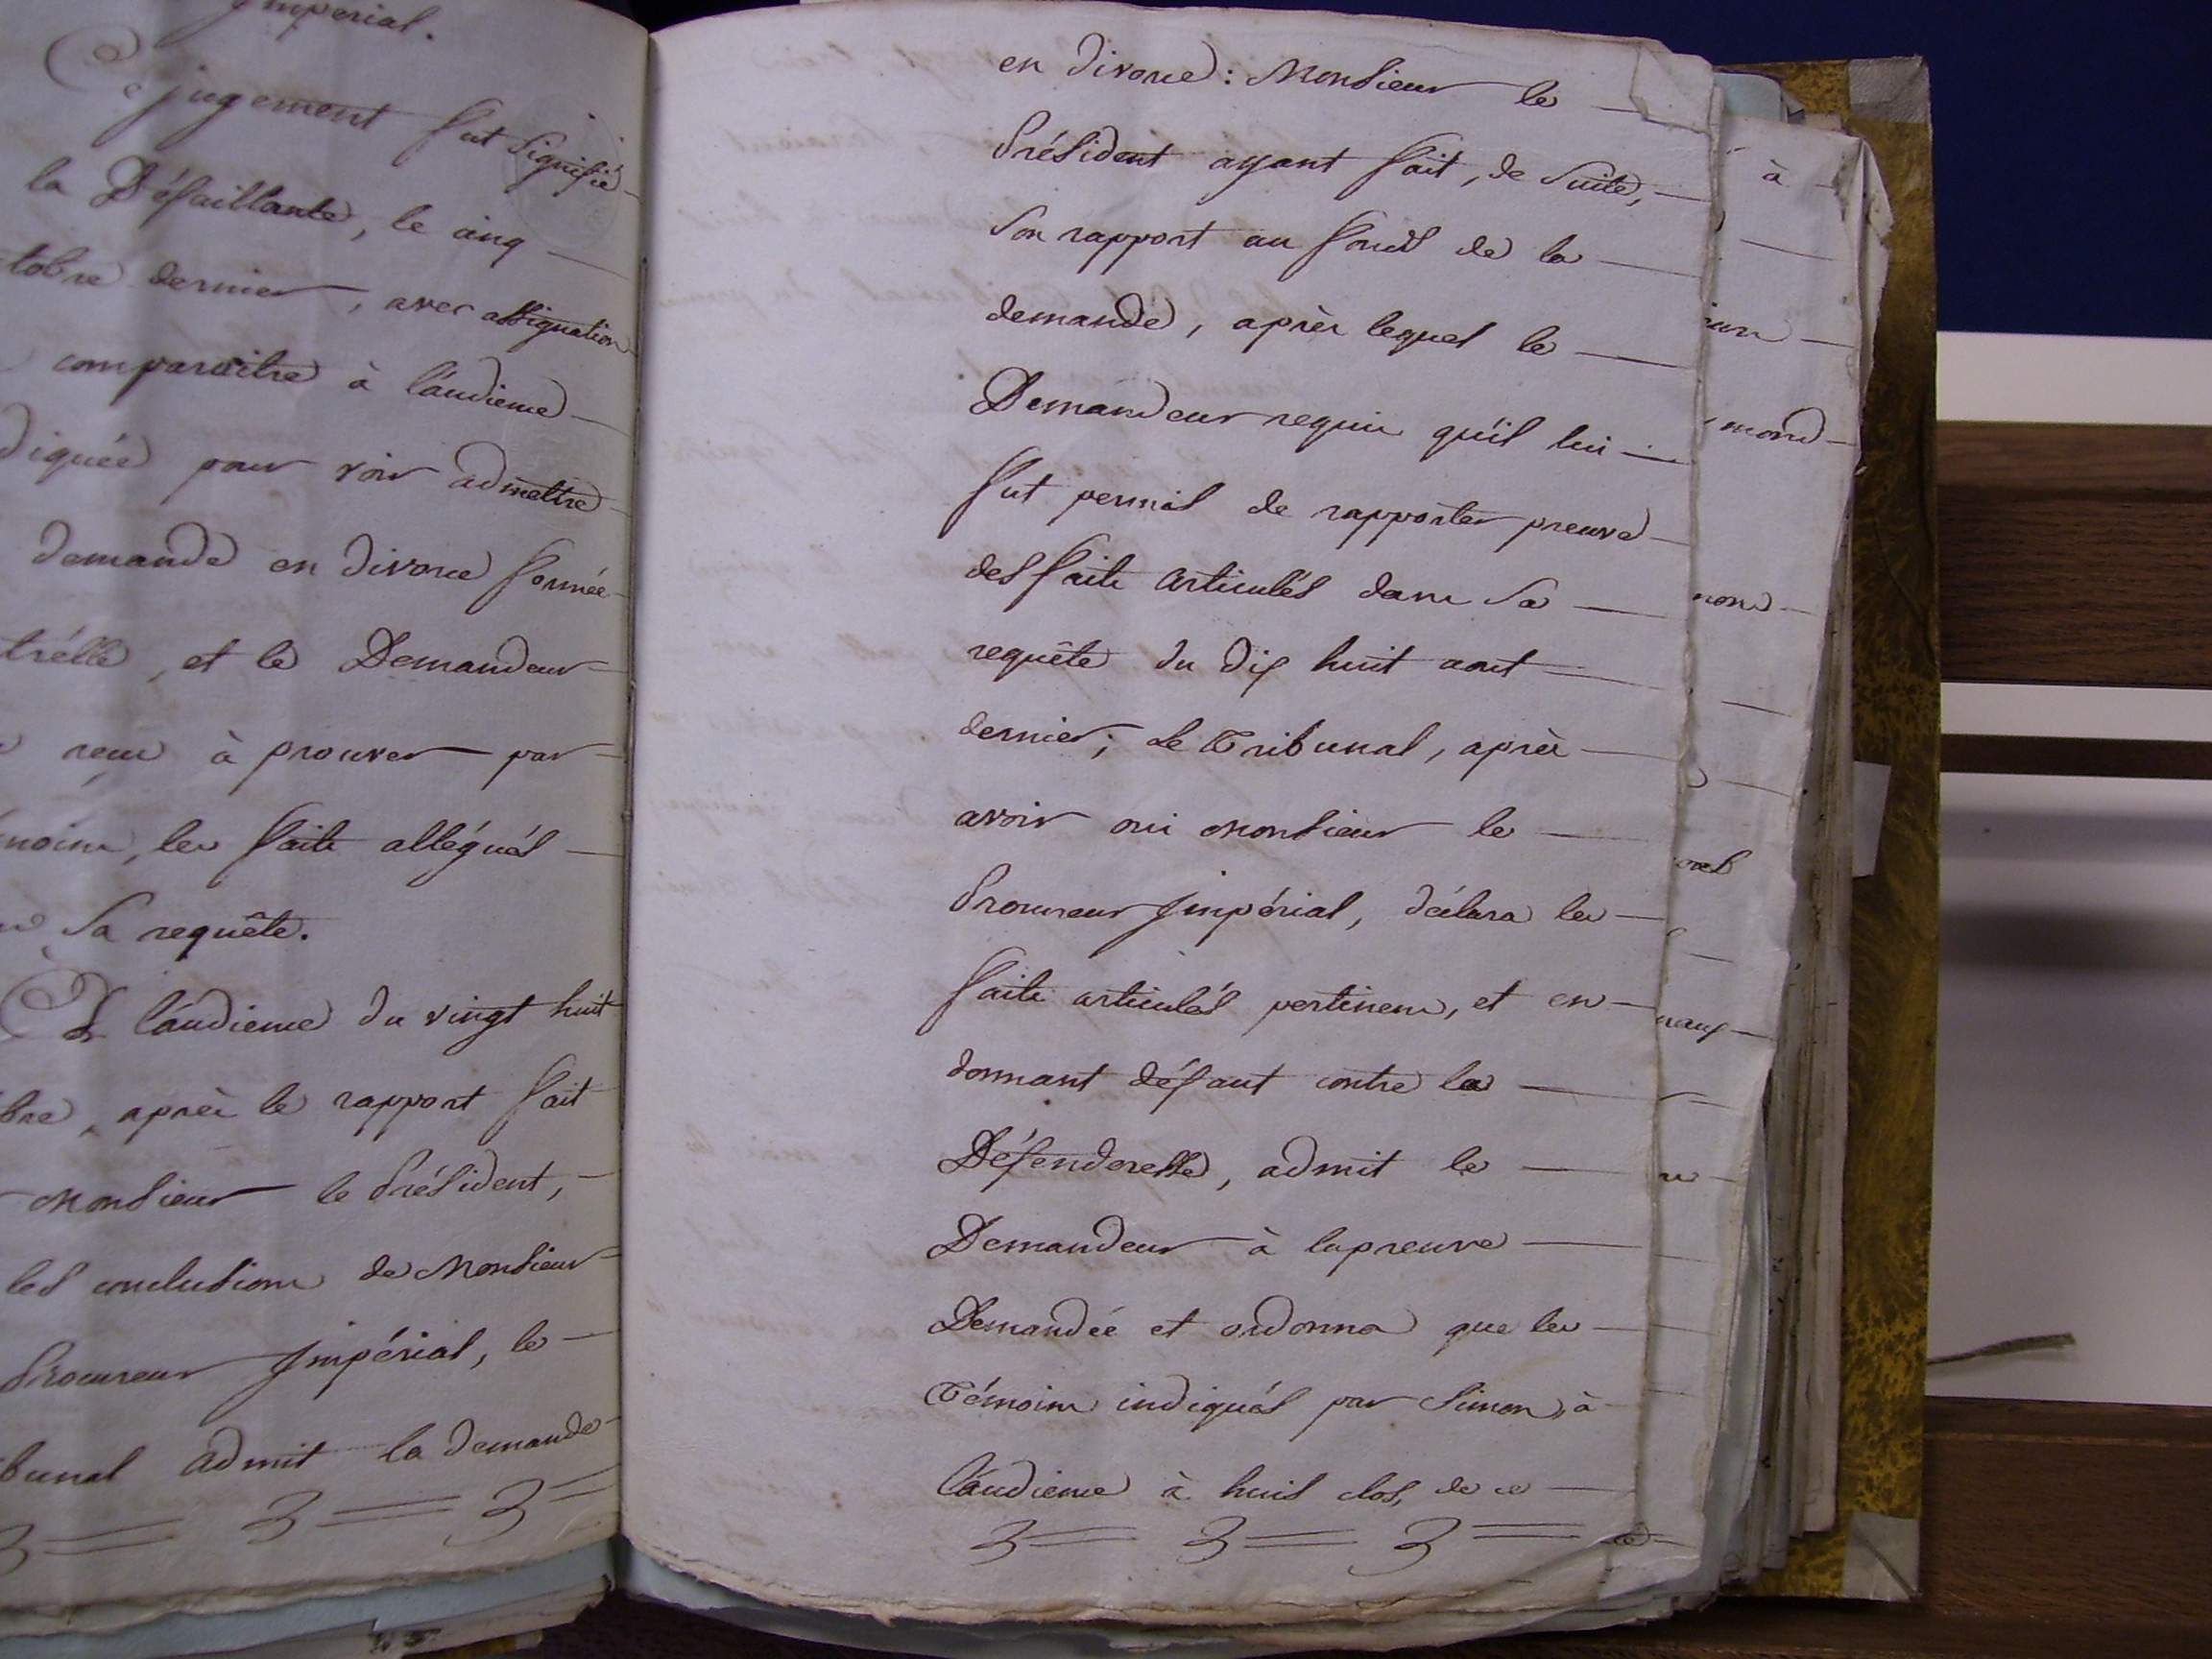 Impérial.
Ce jugement fut signifié
la Défaillante, le cinq
tobre dernier, avec assignation
comparaître à l'audience
diquée pour voir admettre
demande en divorce formée
trelle, et le Demandeur
reçu à prouver par
moins, les faits allégués
sa requête.
A l'audience du vingt huit
bre, après le rapport fait
Monsieur le Président,
les conclusions de Monsieur
Procureur Impérial, le
bunal admit la demande
en divorce : Monsieur le
Président ayant fait, de suite,
son rapport au fonds de la
demande, après lequel le
Demandeur requis qu'il lui
fut permis de rapporter preuve
des faits articulés dans sa
requête du dix huit aout
dernier ; Le Tribunal, après
avoir oui Monsieur le
Procureur Impérial, déclara les
faits articulés pertinens, et en
donnant défaut contre la
Défenderesse, admit le
Demandeur à la preuve
Demandée et ordonna que les
Témoins indiqués par Simon, à
l'audience à huis clos, de ce
à
mond